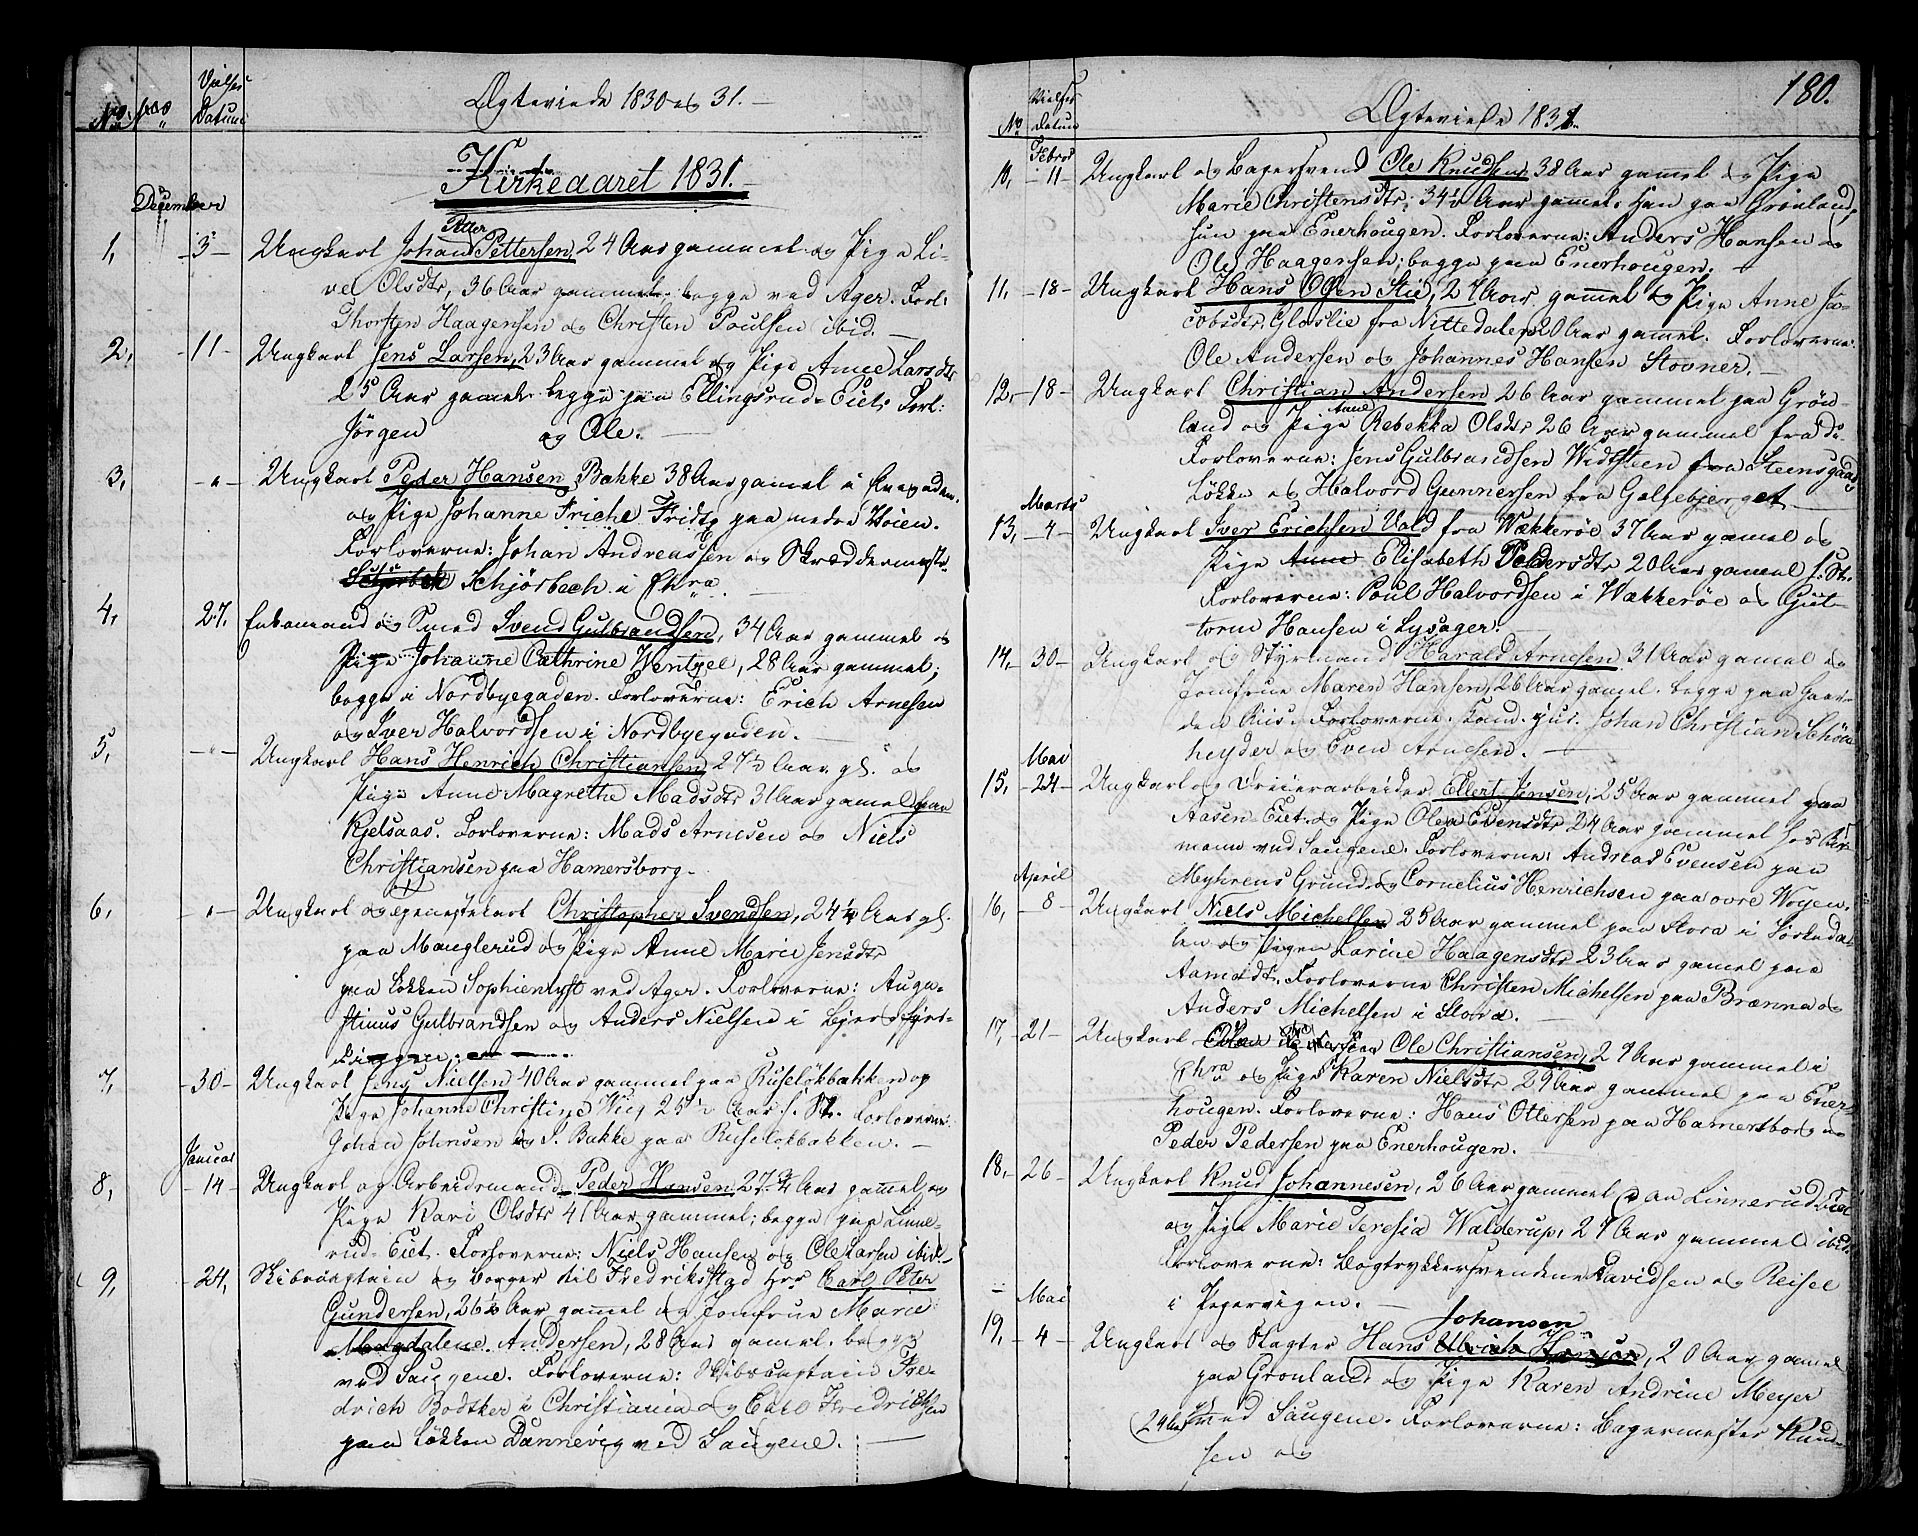 Vielses
No. Datum
Ægteviede 1830 og 31.
Kirkeaaret 1831.
December
Petter
1, 3 Ungkarl Johan Pettersen, 24 Aar gammel og Pige Li-
ve Olsdtr, 36 Aar gammel begge ved Ager. Forl:
Thorsten Haagensen og Christen Poulsen ibid.
2, 11 Ungkarl Jens Larsen, 23 Aar gammel og Pige Anne Larsdtr
25 Aar gamel begge paa Ellingsrud-Eiet; Forl:
Jörgen og Ole.
3, " Ungkarl Peder Hansen Bakke 38 Aar gamel i
og Pige Johanne Friche Fridtz paa nedre Woien.
Forloverne: Johan Andreassen og Skræddermestr.
Schjörbech i Chra.
4, 27. Enkemand og Smed Svend Gulbrandsen, 34 Aar gammel og
Pige Johanne Cathrine Wentzel, 28 Aar gammel;
begge i Nordbyegaden. Forloverne: Erich Arnesen
og Iver Halvordsen i Nordbyegaden.
5, " Ungkarl Hans Henrich Christiansen 27½ Aar gl. og
Pige Anne Magrethe Madsdtr 31 Aar gamel paa
Kjelsaas. Forloverne: Mads Arnesen og Niels
Christiansen paa Hamersborg.
6, " Ungkarl og Christopher Svendsen, 24½ Aar gl.
paa Manglerud og Pige Anne Marie Jensdtr
paa Løkken Sophienlyst ved Ager. Forloverne: Augu-
stinus Gulbrandsen og Anders Nielsen i
7, 30 Ungkarl Jens Nielsen 40 Aar gammel paa Ruseløkbakken og
Pige Johanne Christine Wiig 25½ Aar s. St. Forloverne:
Johan Johnsen og S. Bakke paa Ruseløkbakken.
Januar
8, 14 Ungkarl og Arbeidsmand Peder Hansen 27¾ Aar gammel og
Pige Kari Olsdtr 41 Aar gammel; begge paa Linne-
rud-Eiet. Forloverne: Niels Hansen og Ole Larsen ibid.
9, 24, Skibscaptain og Borger til Fredriksstad Hr Carl Peter
Gundersen, 26½ Aar gammel og Jomfrue Marie
Magdalene Andersen, 28 Aar gamel. begge
ved Saugene. Forloverne: Skibscaptain Fre-
drich Bødtker i Christiania og Carl Fridrichsen
paa Løkken Dannevig ved Saugene.
180.
Vielses
No Datum
Ægteviede 1831.
Febroar
10, 11 Ungkarl og Bagersvend Ole Knudsen 38 Aar gamel og Pige
Marie Christensdtr; 34½ Aar gamel. Han paa Grønland,
hun paa Enerhougen. Forloverne: Anders Hansen og
Ole Haagensen; begge paa Enerhougen.
11, 18 Ungkarl Hans Olsen Stie, 27 Aar, gamel og Pige Anne Ja-
cobsdtr Gloslie fra Nittedalen, 20 Aar gammel. Forloverne:
Ole Andersen og Johannes Hansen Stovner.
12, 18 Ungkarl Christian Andersen 26 Aar gammel paa Grøn-
Anne
land og Pige Rebekka Olsdtr 26 Aar gammel fra do
Forloverne: Jens Gulbrandsen Widtsteen fra Steensgaards
Løkke og Halvord Gunnersen fra Galgebjerget
Marts
13, 4 Ungkarl Iver Erichsen Vold fra Wækkerøe 37 Aar gamel og
Pige Anne Elisabeth Pedersdtr 20 Aar gamel s. St.
Forloverne: Poul Halvordsen i Wækkerøe og Gut-
torm Hansen i Lysager.
14, 30 Ungkarl og Styrmand Harald Arnesen 31 Aar gamel og
Jomfrue Maren Hansen, 26 Aar gamel. begge paa Gaar-
den Riis. Forloverne: Kand. jur. Johan Christian Schön-
heyder og Even Arnesen.
Mai
15, 24 Ungkarl og Dreierarbeider Ellert Jensen, 25 Aar gammel paa
Aasen Eiet og Pige Olea Evensdtr 24 Aar gammel hos
mann ved Saugene. Forloverne: Andreas Evensen paa
Myhrens Grund og Cornelius Henrichsen paa øvre Woyen.
April
16, 8 Ungkarl Niels Michelsen 25 Aar gammel paa Slora i Sørkeda-
len og Pigen Karine Haagensdtr 23 Aar gamel paa
Aamodt. Forloverne Christen Michelsen paa Brænna og
Anders Michelsen i Slora.
17, 21 Ungkarl Ole Christiansen, 27 Aar gammel i
Chra og Pige Karen Nielsdtr 29 Aar gammel paa Ener-
hougen. Forloverne: Hans Ottersen paa Hamersborg og
Peder Pedersen paa Enerhougen.
18, 26 Ungkarl Knud Johannesen, 26 Aar gammel paa Linnerud Eiet
og Pige Marie Teresia Walderup, 27 Aar gammel ibid.
Forloverne: Bogtrykkersvendene Davidsen og Reisel
i Pipervigen.
Mai
Johansen
19, 4 Ungkarl og Slagter Hans Ulrich Hansen, 20 Aar gamel
paa Grønland og Pige Karen Andrine Meyer
(24 Aar gl) ved Saugene. Forloverne: Bagermester Knud-
sen og